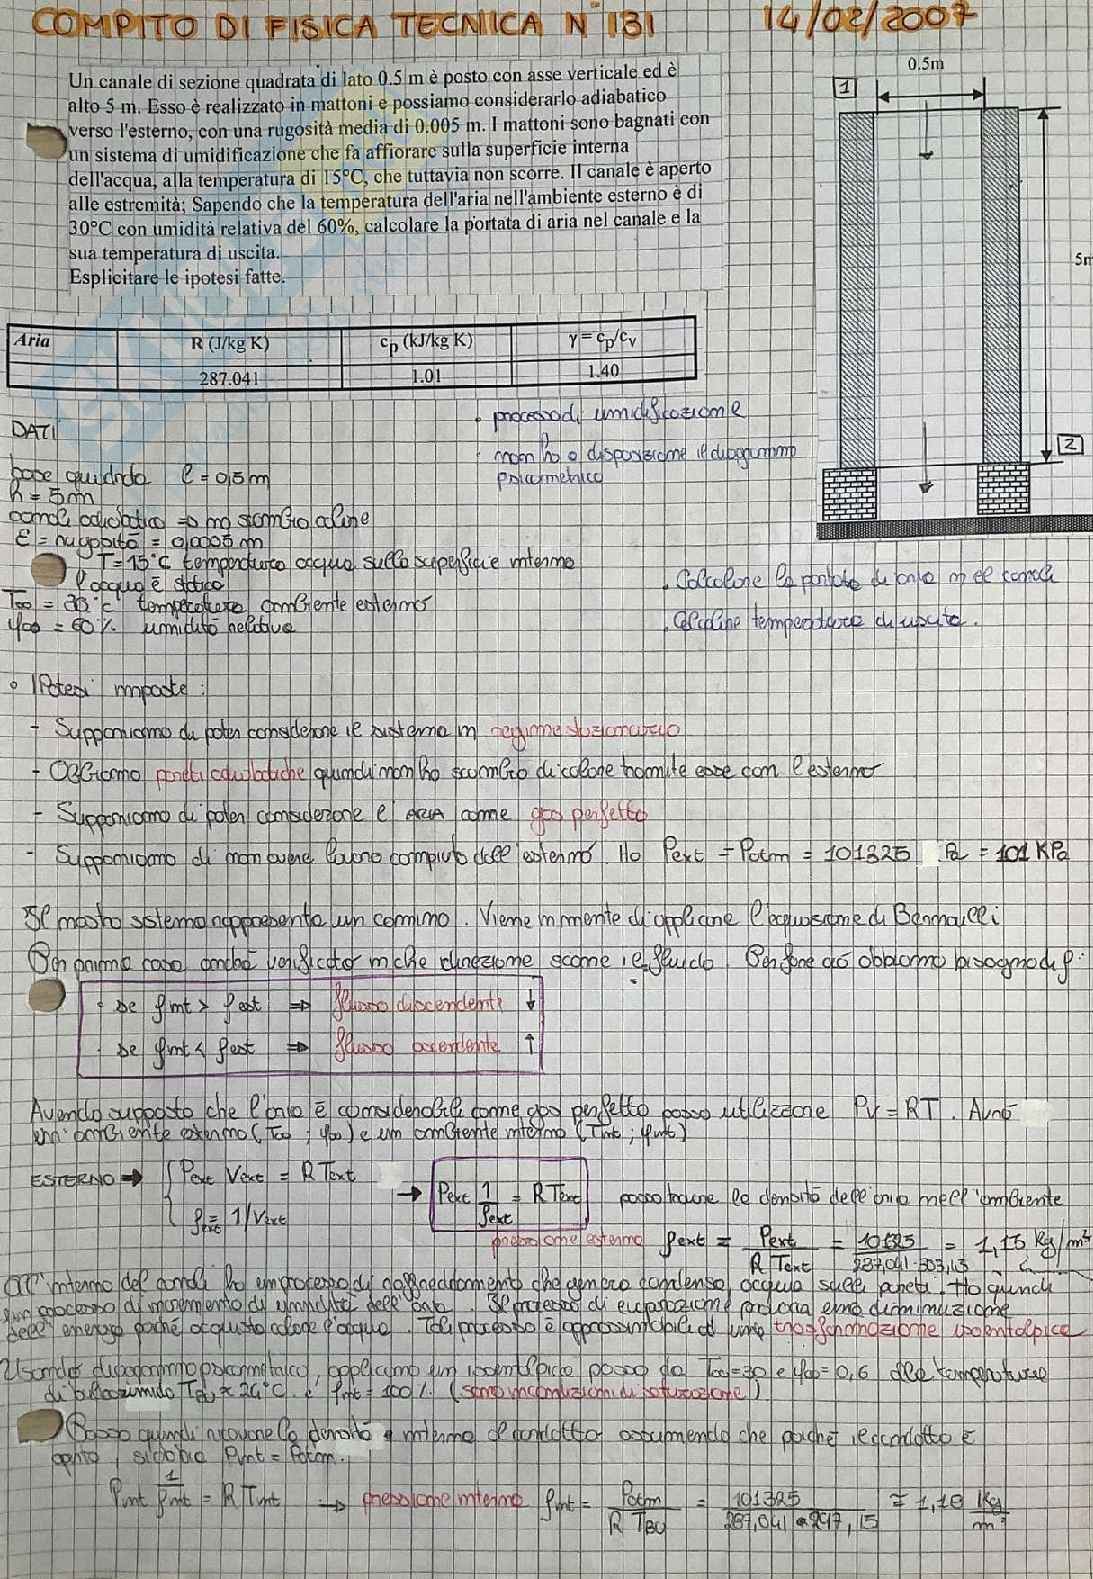 COMPITO DI FISICA TECNICA N°131 14/02/2007
Un canale di sezione quadrata di lato 0.5 m è posto con asse verticale ed è
alto 5 m. Esso è realizzato in mattoni e possiamo considerarlo adiabatico
verso l'esterno, con una rugosità media di 0.005 m. I mattoni sono bagnati con
un sistema di umidificazione che fa affiorare sulla superficie interna
dell'acqua, alla temperatura di 15°C, che tuttavia non scorre. Il canale è aperto
alle estremità; Sapendo che la temperatura dell'aria nell'ambiente esterno è di
30°C con umidità relativa del 60%, calcolare la portata di aria nel canale e la
sua temperatura di uscita.
Esplicitare le ipotesi fatte.
0.5m
1
5m
2
Aria R (J/kg K) cp (kJ/kg K) γ = cp/cv
287.041 1.01 1.40
• processo di umidificazione
• non ho a disposizione il diagramma
psicrometrico
DATI
base quadrata l = 0,5m
h = 5m
canale adiabatico => no scambio calore
ε = rugosità = 0,0005 m
T = 15°C temperatura acqua sulla superficie interna
l'acqua è statica
T∞ = 30°C temperatura ambiente esterno
φ∞ = 60% umidità relativa
. Calcolare la portata di aria nel canale
. Calcolare temperatura di uscita.
• Ipotesi imposte:
- Supponiamo di poter considerare il sistema in regime stazionario
- Abbiamo pareti adiabatiche quindi non ho scambio di calore tramite esse con l'esterno
- Supponiamo di poter considerare l'aria come gas perfetto
- Supponiamo di non avere lavoro compiuto dall'esterno. Ho Pext = Patm = 101325 Pa = 101 KPa
Il nostro sistema rappresenta un camino. Viene in mente di applicare l'equazione di Bernoulli
verificato in che direzione scorre il fluido. Per fare ciò abbiamo bisogno di ρ:
• se ρint > ρest ⇒ flusso discendente ↓
• se ρint < ρest ⇒ flusso ascendente ↑
Avendo supposto che l'aria è considerabile come gas perfetto posso utilizzare PV = RT. Avrò
un ambiente esterno (T∞ ; φ∞) e un ambiente interno (Tint ; φint)
ESTERNO → { Pext Vext = R Text
ρext = 1/Vext
→ Pext 1/ρext = R Text
posso trovare la densità dell'aria nell'ambiente
esterno ρext = Pext / R Text = 101325 / 287,041·303,15 = 1,15 Kg/m³
All'interno del canale ho un processo di raffreddamento che genera condensa, acqua sulle pareti. Ho quindi
un processo di incremento di umidità dell'aria. Il processo di evaporazione provoca una diminuzione
dell'energia poiché acquista calore l'acqua. Tale processo è approssimabile ad una trasformazione isoentalpica
Usando diagramma psicrometrico, applicando un isoentalpica passo da T∞=30 e φ∞=0,6 alla temperatura
di bulbo umido Tbu ≈ 24°C e φint = 100% (sono in condizioni di saturazione)
Posso quindi ricavare la densità all'interno del condotto assumendo che poiché il condotto è
aperto, si abbia Pint = Patm.
Pint 1/ρint = R Tint → interno ρint = Patm / R Tbu = 101325 / 287,041 · 297,15 = 1,18 Kg/m³